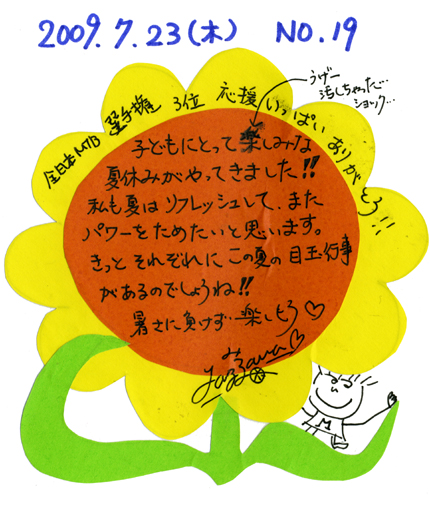 2009.7.23(木) NO.19
全日本MTB選手権 3位 応援いっぱいありがとう!!
うげー
汚しちゃった…
ショック…
子どもにとって楽しみな
夏休みがやってきました!!
私も夏はリフレッシュして、また
パワーをためたいと思います。
きっとそれぞれにこの夏の目玉行事
があるのでしょうね!!
暑さに負けず 楽しもう♡
M